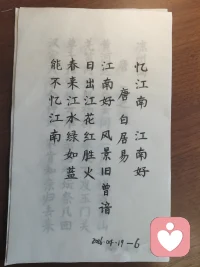 忆江南 江南好
唐 白居易
江南好 风景旧曾谙
日出江花红胜火
春来江水绿如蓝
能不忆江南